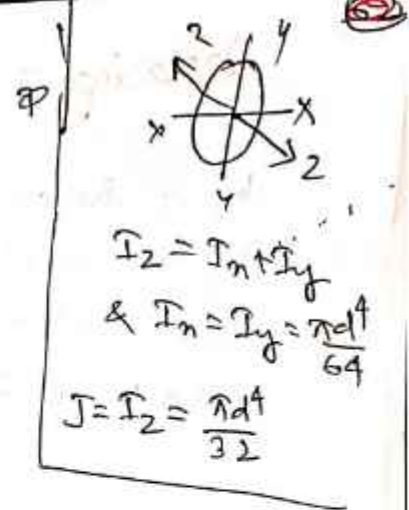 62
z y
x X
y z
I_z = I_x + I_y
& I_x = I_y = πd⁴/64
J = I_z = πd⁴/32